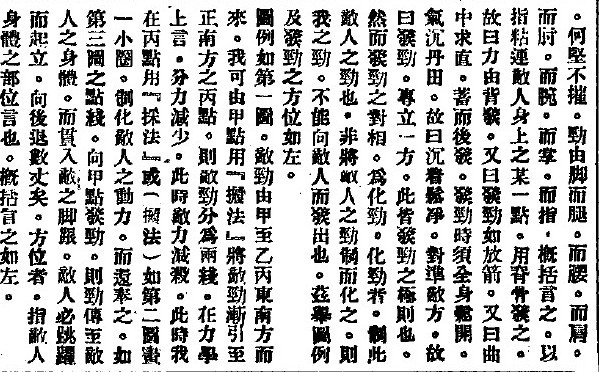 。何堅不摧。勁由脚而腿。而腰。而肩。
而肘。而腕。而掌。而指。概括言之。以
指粘連敵人身上之某一點。用脊骨發之。
故曰力由背發。又曰發勁如放箭。又曰曲
中求直。蓄而後發。發勁時須全身鬆開。
氣沉丹田。故曰沉着鬆凈。對準敵方。故
曰發勁。專立一方。此皆發勁之極則也。
然而發勁之對相。爲化勁。化勁者。制此
敵人之勁也。非將敵人之勁制而化之。則
我之勁。不能向敵人而發出也。茲舉圖例
及發勁之方位如左。
圖例如第一圖。敵勁由甲至乙丙東南方而
來。我可由甲點用『搬法』將敵勁漸引至
正南方之丙點。則敵勁分爲兩綫。在力學
上言。分力減少。此時敵力減殺。此時我
在丙點用『採法』或（搬法）如第二圖畫
一小圈。制化敵人之動力。而還奉之。如
第三圖之點綫。向甲點發勁。則勁傳至敵
人之身體。而貫入敵之脚跟。敵人必跳躍
而起立。向後退數丈矣。方位者。指敵人
身體之部位言也。概括言之如左。